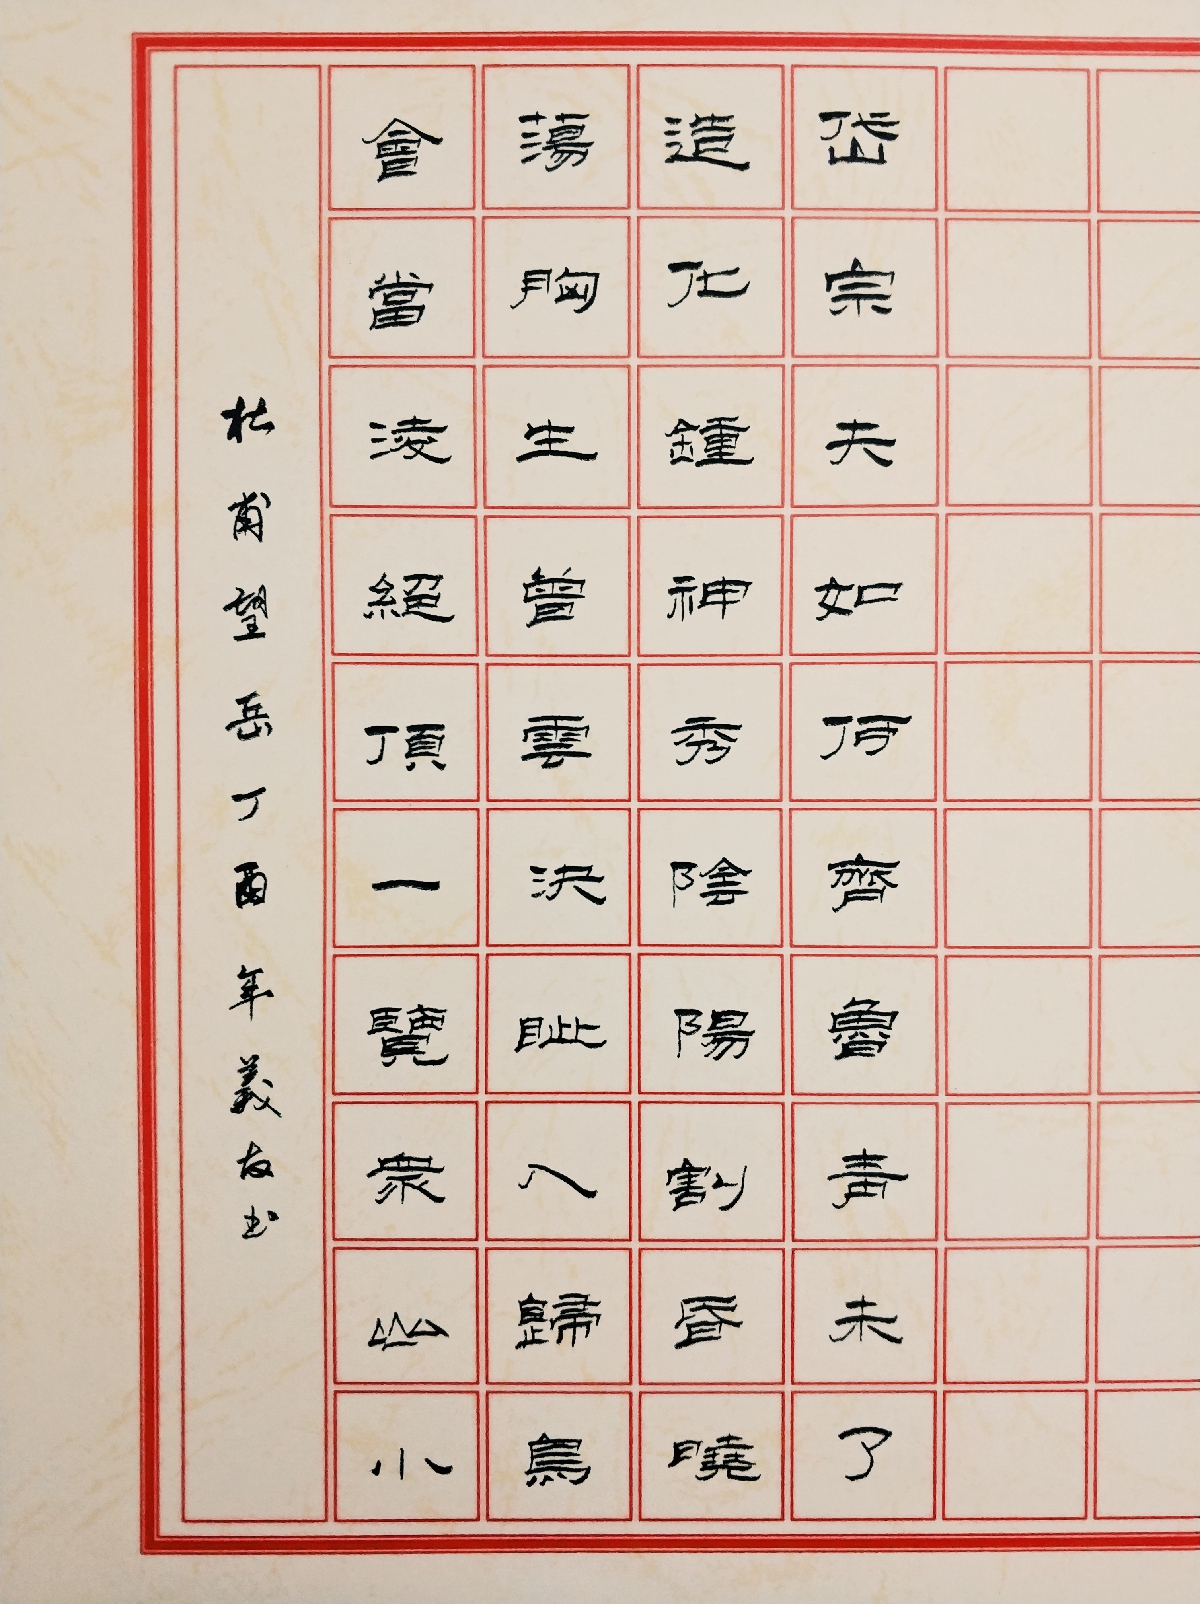 岱宗夫如何齊魯青未了
造化鍾神秀陰陽割昏曉
蕩胸生曾雲決眥入歸鳥
會當凌絕頂一覽衆山小
杜甫望岳丁酉年義友书